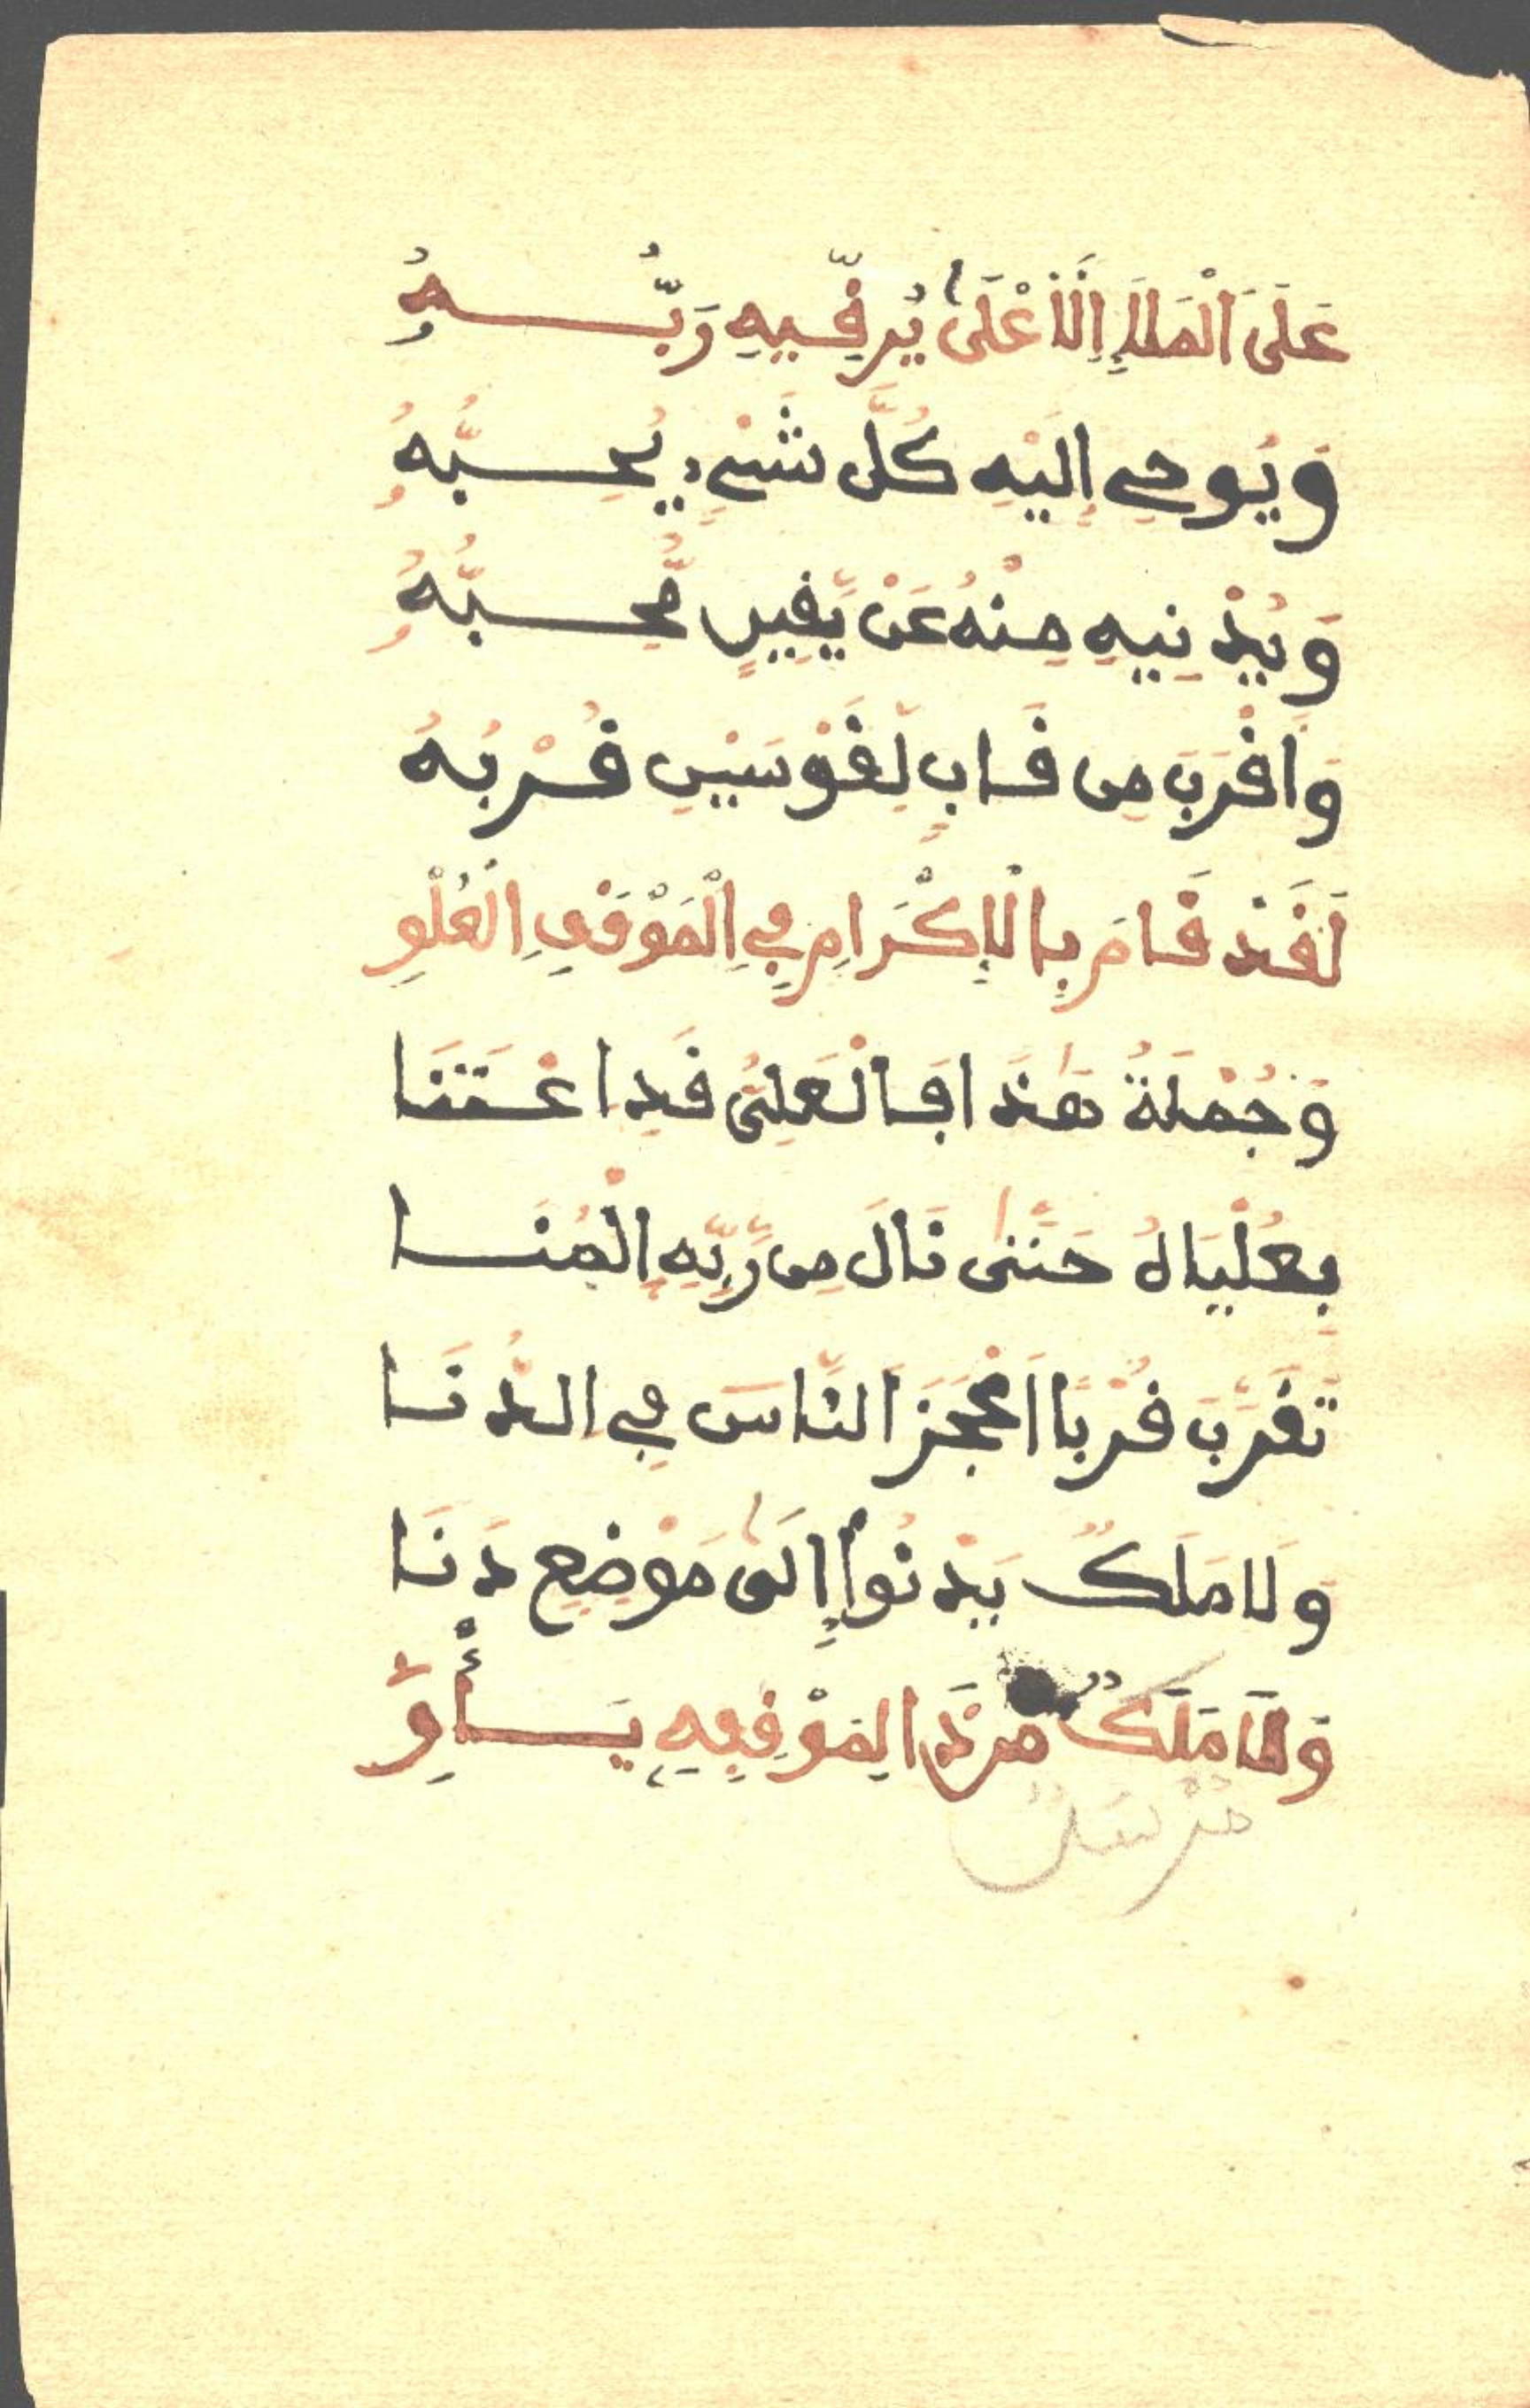 عَلَى الْمَلَإِ الْأَعْلَىٰ يُرَقِّيهِ رَبُّـــهُ
وَيُوحِي إِلَيْهِ كُلَّ شَيْءٍ يُحِـــبُّهُ
وَيُدْنِيهِ مِنْهُ عَنْ يَّقِينٍ مُّحِـــبُّهُ
وَاقْرَبَ مِن قَابٍ لِّقَوْسَيْنِ قُرْبُهُ
لَقَدْ قَامَ بِالْإِكْرَامِ فِي الْمَوْقِفِ الْعُلْوِ
وَجُمْلَةُ هَٰذَا فَالْعَلِيُّ قَدِ اعْتَنَا
بِعُلْيَاهُ حَتَّىٰ نَالَ مِن رَّبِّهِ الْمُنَـــا
تَقَرَّبَ قُرْبًا اَعْجَزَ النَّاسَ فِي الدُّنَـا
وَلَا مَلَكٌ يَدْنُواْ إِلَىٰ مَوْضِعٍ دَنَا
وَلَا مَلَكٌ مِن ذَا لِمَوْقِفِهِ يَـــأْوِ
مُرْسَلٌ